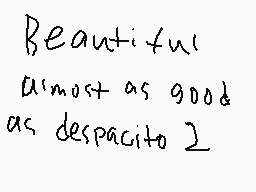 Beautiful
almost as good
as despacito 2